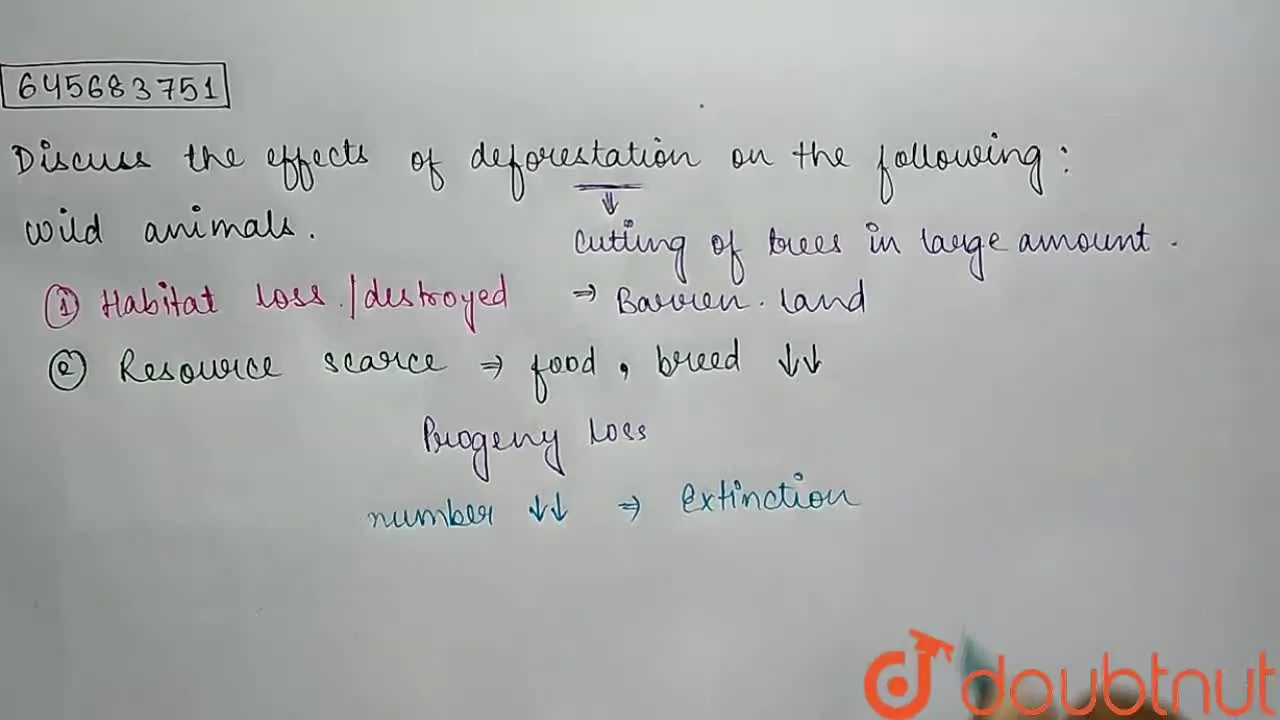 645683751
Discuss the effects of deforestation on the following:
wild animals.
↓
Cutting of trees in large amount.
① Habitat loss./destroyed ⇒ Barren. land
② Resource scarce ⇒ food, breed ↓↓
Progeny loss
number ↓↓ ⇒ extinction
doubtnut